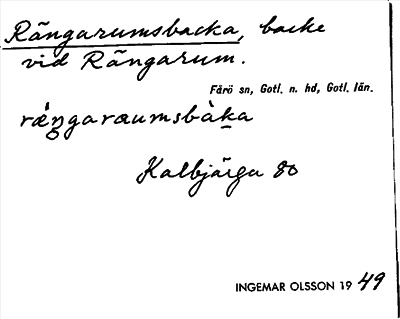 Rängarumsbacka, backe
vid Rängarum.
Fårö sn, Gotl. n. hd, Gotl. län.
ræ̀ŋgaraumsbàka
Kalbjärga 80
INGEMAR OLSSON 19 49